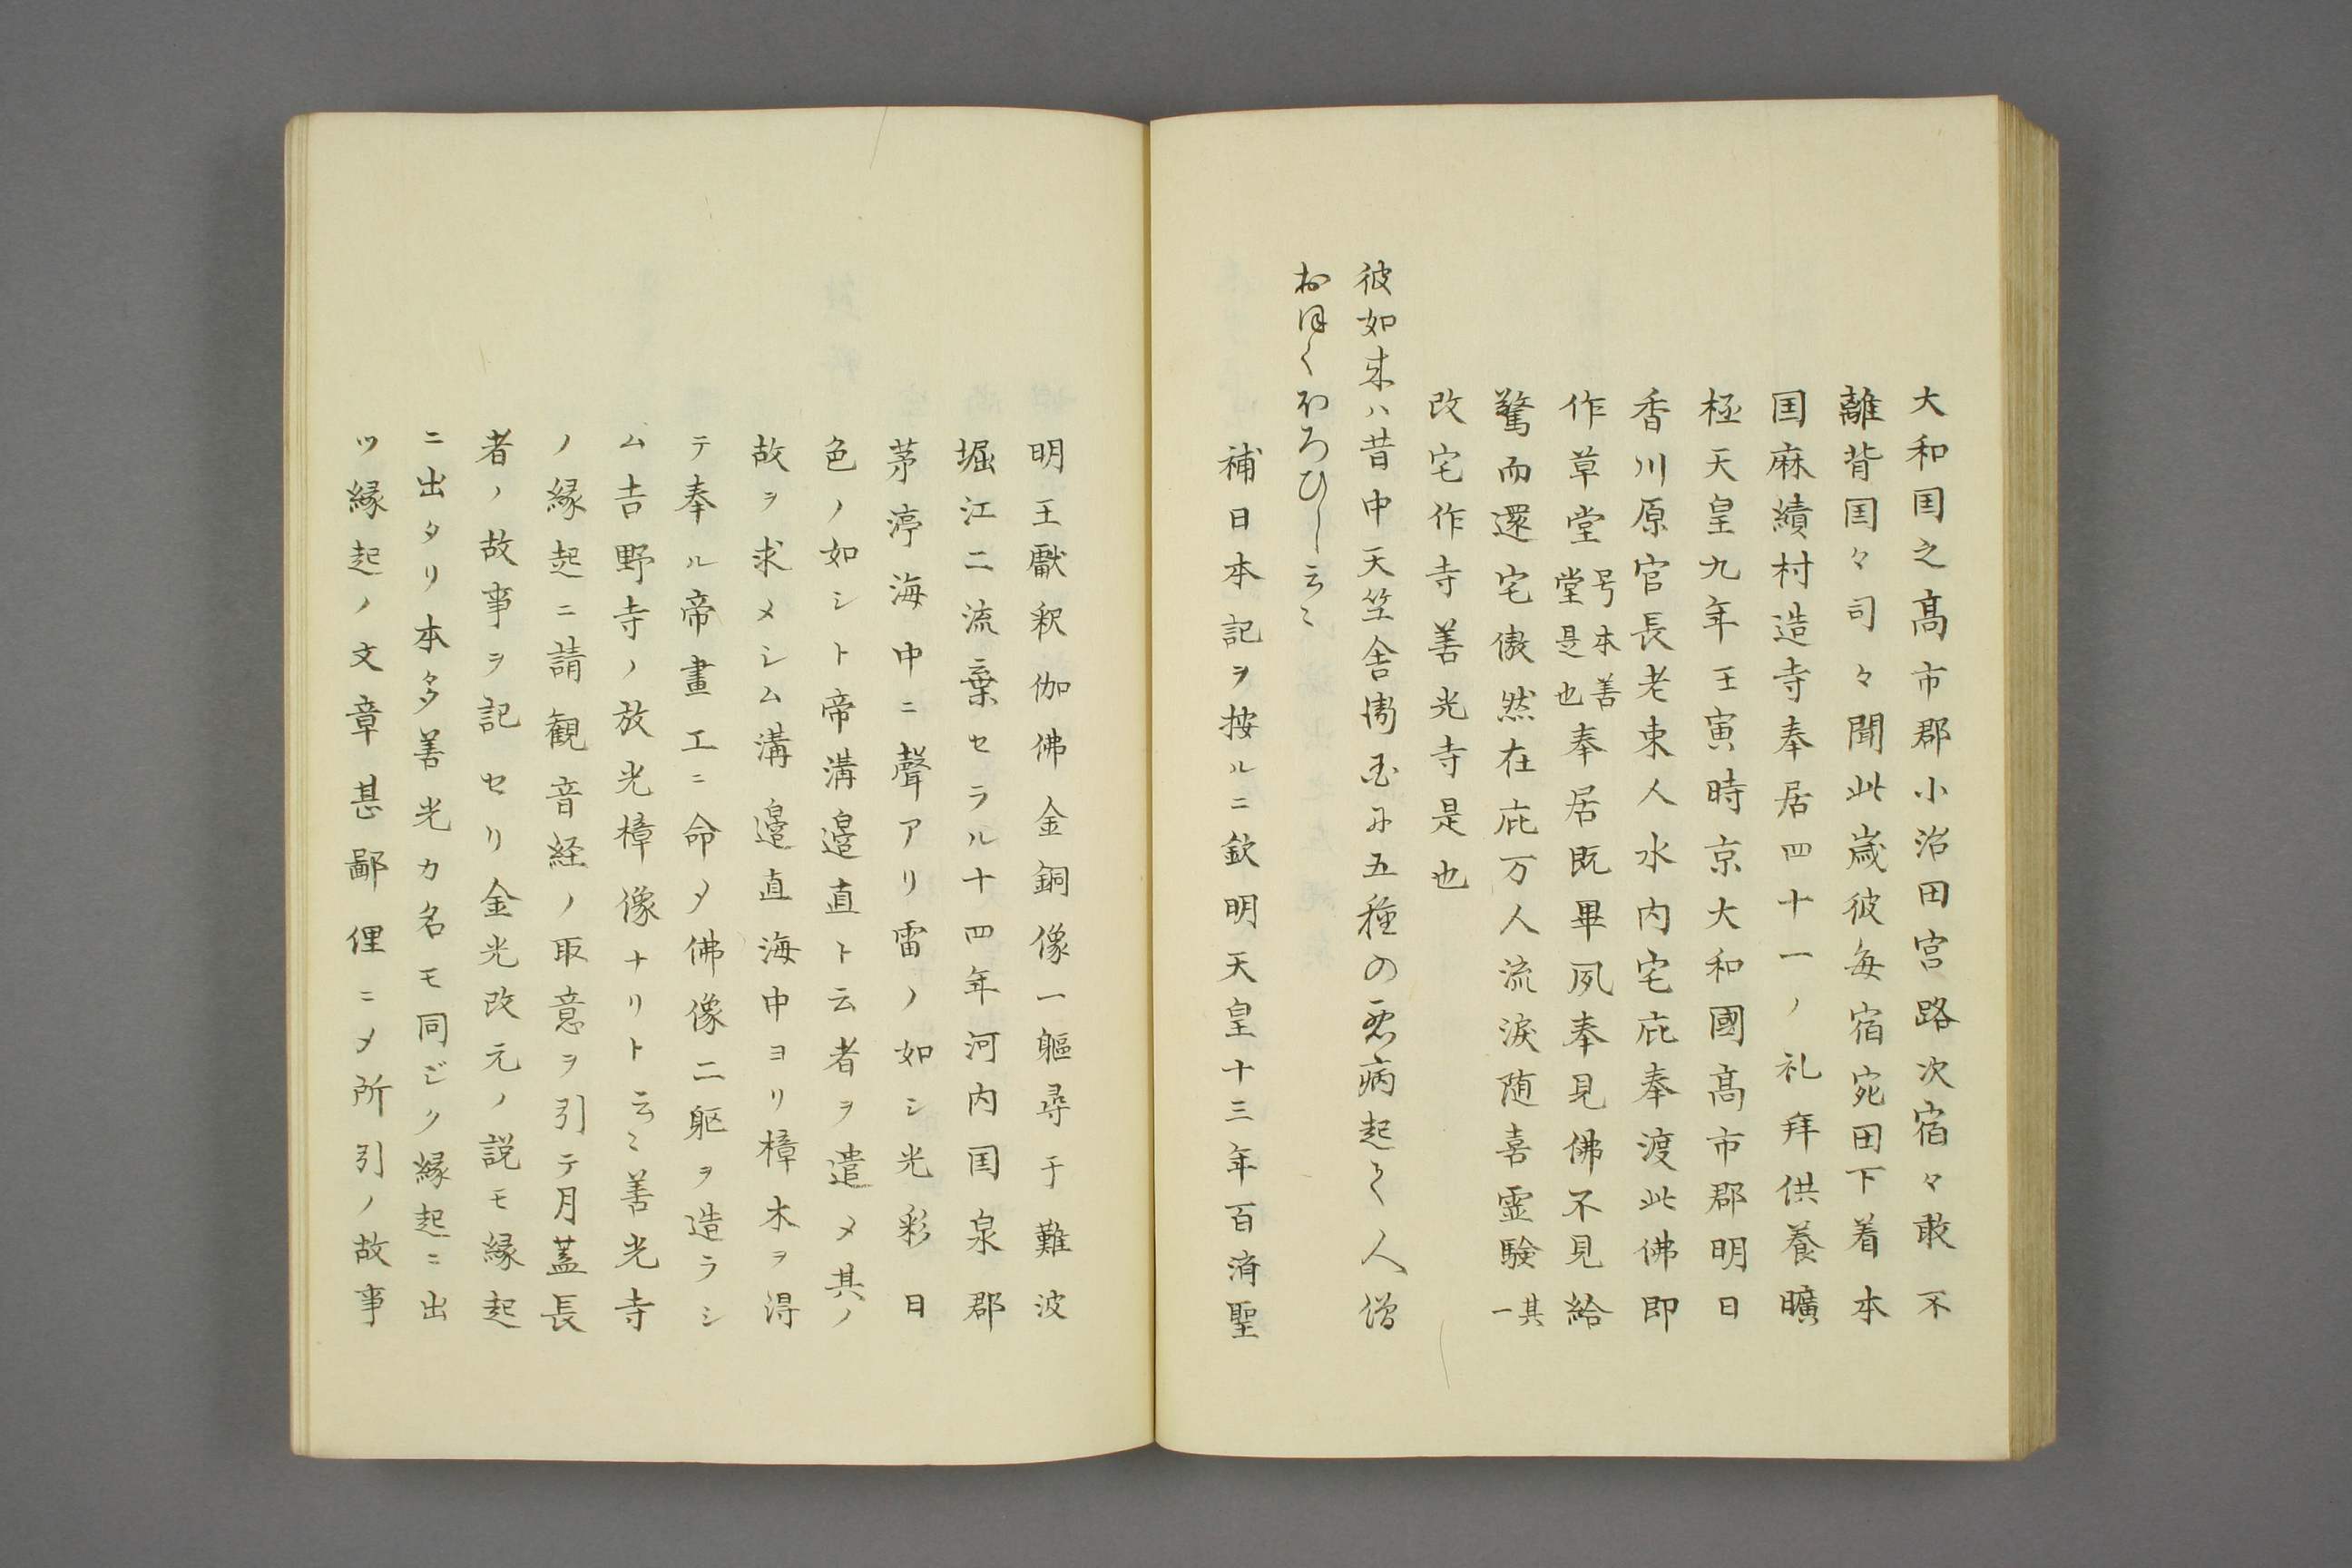 大和国之髙市郡小治田宮路次宿々敢不
離背国々司々聞此歳彼毎宿宛田下着本
国麻績村造寺奉居四十一ノ礼拜供養曠
極天皇九年壬寅時京大和國髙市郡明日
香川原官長老東人水内宅庇奉渡此佛即
作草堂号本善堂是也奉居既畢夙奉見佛不見給
驚而還宅傲然在庇万人流涙随喜霊験其一
改宅作寺善光寺是也
彼如来ハ昔中天竺舎衛国に五種の悪病起て人僧
おほくほろひし云々
補日本記ヲ按ルニ欽明天皇十三年百済聖
明王獻釈伽佛金銅像一軀尋于難波
堀江ニ流棄セラル十四年河内国泉郡
茅渟海中ニ聲アリ雷ノ如シ光彩日
色ノ如シト帝溝邉直ト云者ヲ遣メ其ノ
故ヲ求メシム溝邉直海中ヨリ樟木ヲ得
テ奉ル帝畫工ニ命〆佛像二躯ヲ造ラシ
ム吉野寺ノ放光樟像ナリト云々善光寺
ノ縁起ニ請観音経ノ取意ヲ引テ月蓋長
者ノ故事ヲ記セリ金光改元ノ説モ縁起
ニ出タリ本多善光カ名モ同ジク縁起ニ出
ツ縁起ノ文章甚鄙俚ニ〆所引ノ故事